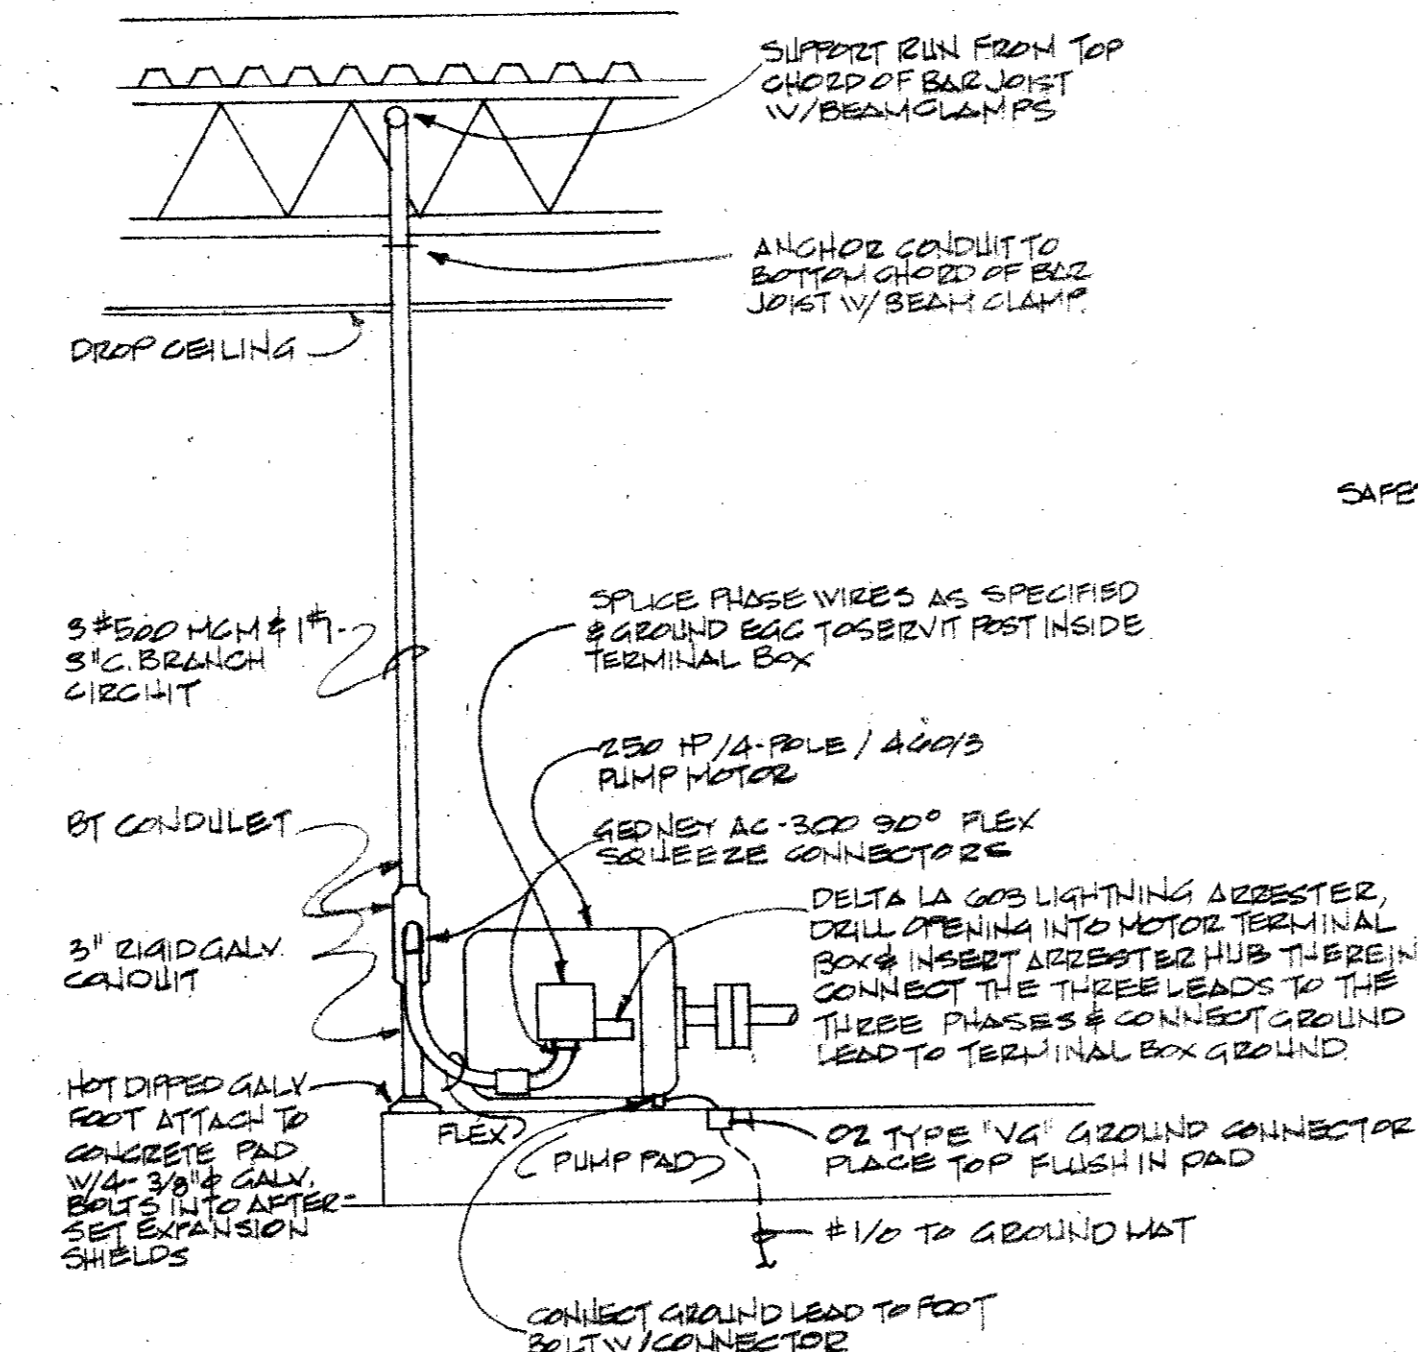 SUPPORT RUN FROM TOP
CHORD OF BAR JOIST
W/BEAM CLAMPS
ANCHOR CONDUIT TO
BOTTOM CHORD OF BAR
JOIST W/ BEAM CLAMP.
DROP CEILING
SAFE
SPLICE PHASE WIRES AS SPECIFIED
& GROUND EGC TO SERVIT POST INSIDE
TERMINAL BOX
3 #500 MCM & 1 #1-
3"C. BRANCH
CIRCUIT
250 HP/4-POLE/460/3
PUMP MOTOR
BT CONDULET
GEDNEY AC-300 90° FLEX
SQUEEZE CONNECTORS
DELTA LA 603 LIGHTNING ARRESTER,
DRILL OPENING INTO MOTOR TERMINAL
BOX & INSERT ARRESTER HUB THEREIN
CONNECT THE THREE LEADS TO THE
THREE PHASES & CONNECT GROUND
LEAD TO TERMINAL BOX GROUND.
3" RIGID GALV.
CONDUIT
HOT DIPPED GALV
FOOT ATTACH TO
CONCRETE PAD
W/4- 3/8"φ GALV.
BOLTS INTO AFTER-
SET EXPANSION
SHIELDS
FLEX
PUMP PAD
OZ TYPE "VG" GROUND CONNECTOR
PLACE TOP FLUSH IN PAD
#1/0 TO GROUND MAT
CONNECT GROUND LEAD TO FOOT
BOLT W/CONNECTOR